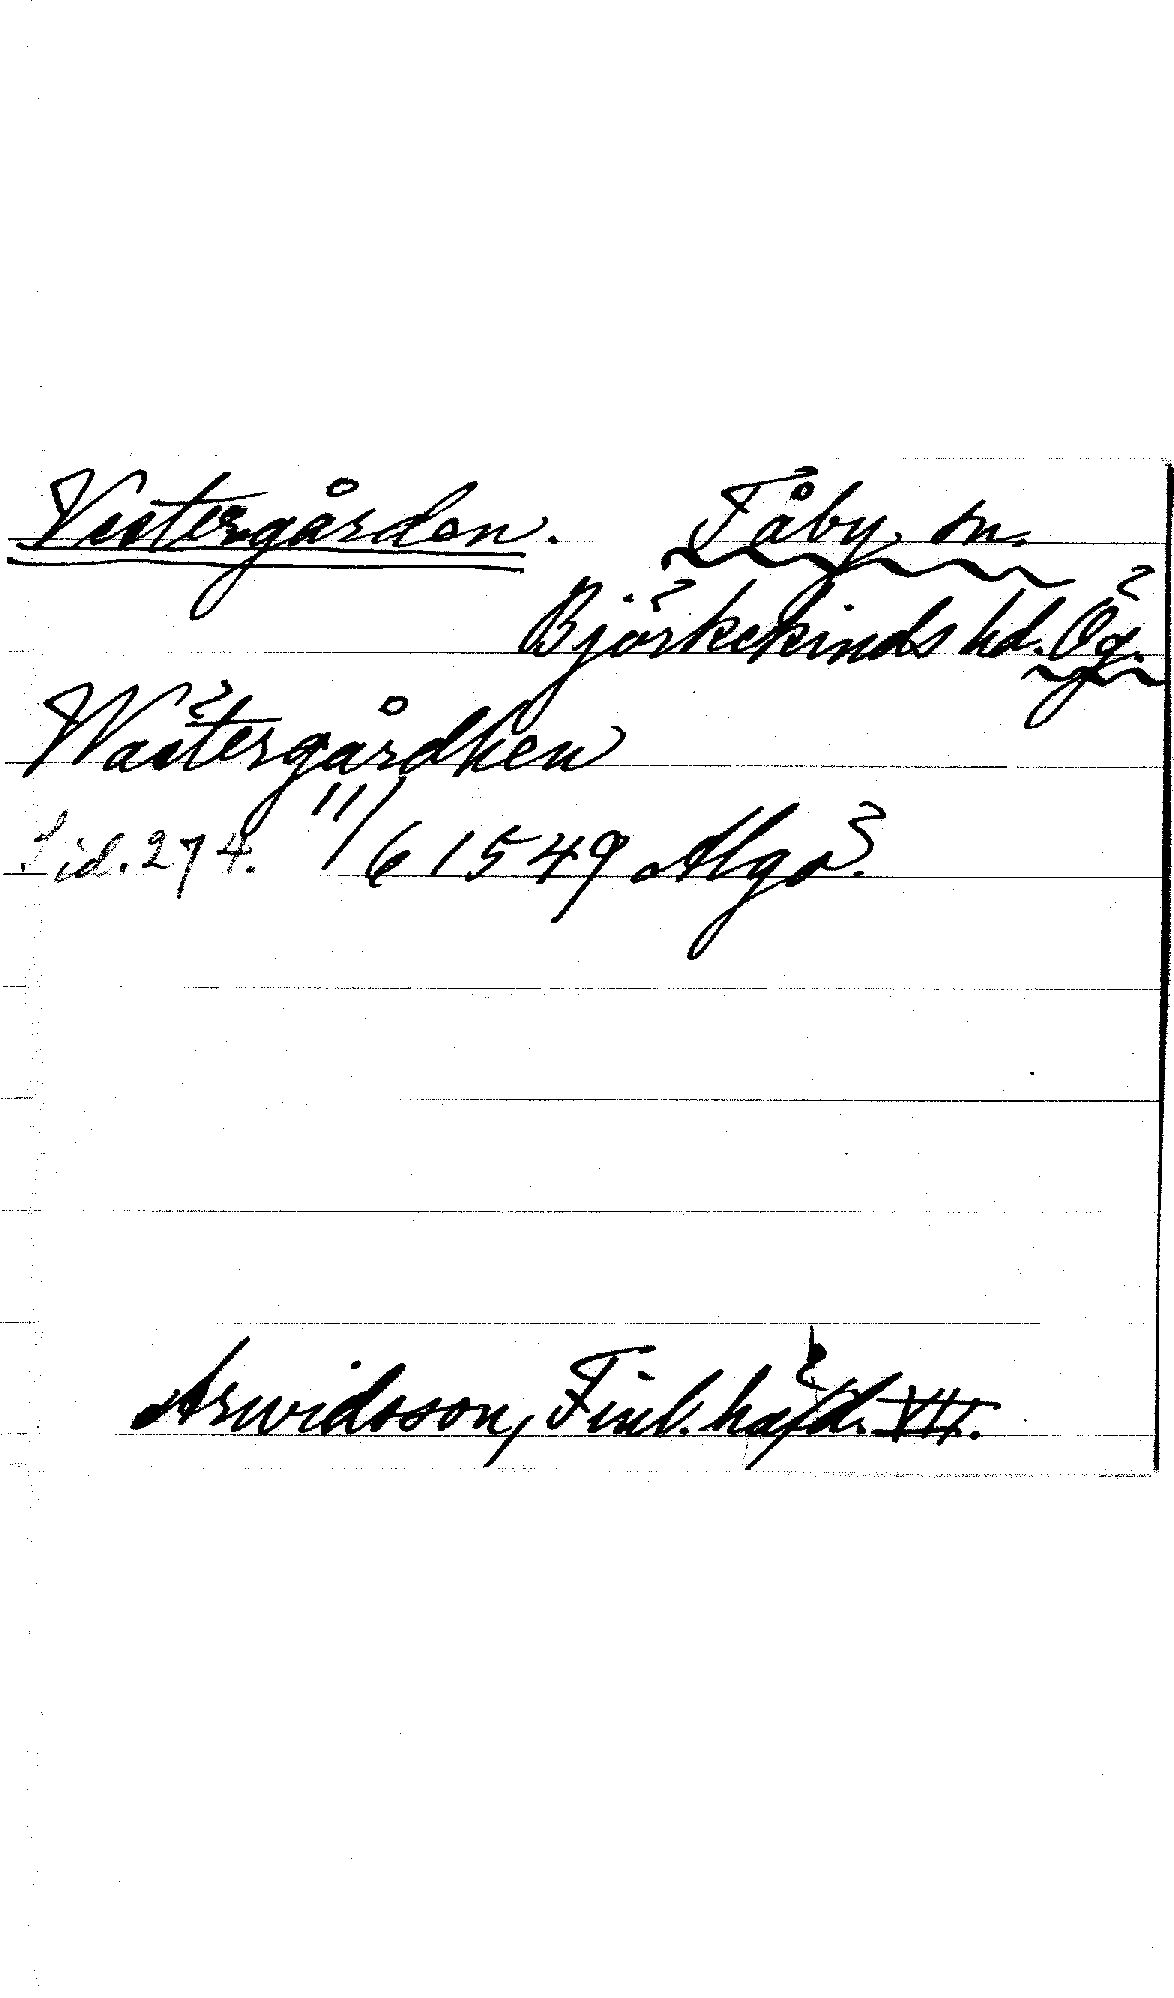 Vestergården. Tåby sn.
Björkekinds hd. Ög.
Wästergårdhen
Sid. 274. 11/6 1549 Algö.
Arwidsson, Finl. häfd. VII.